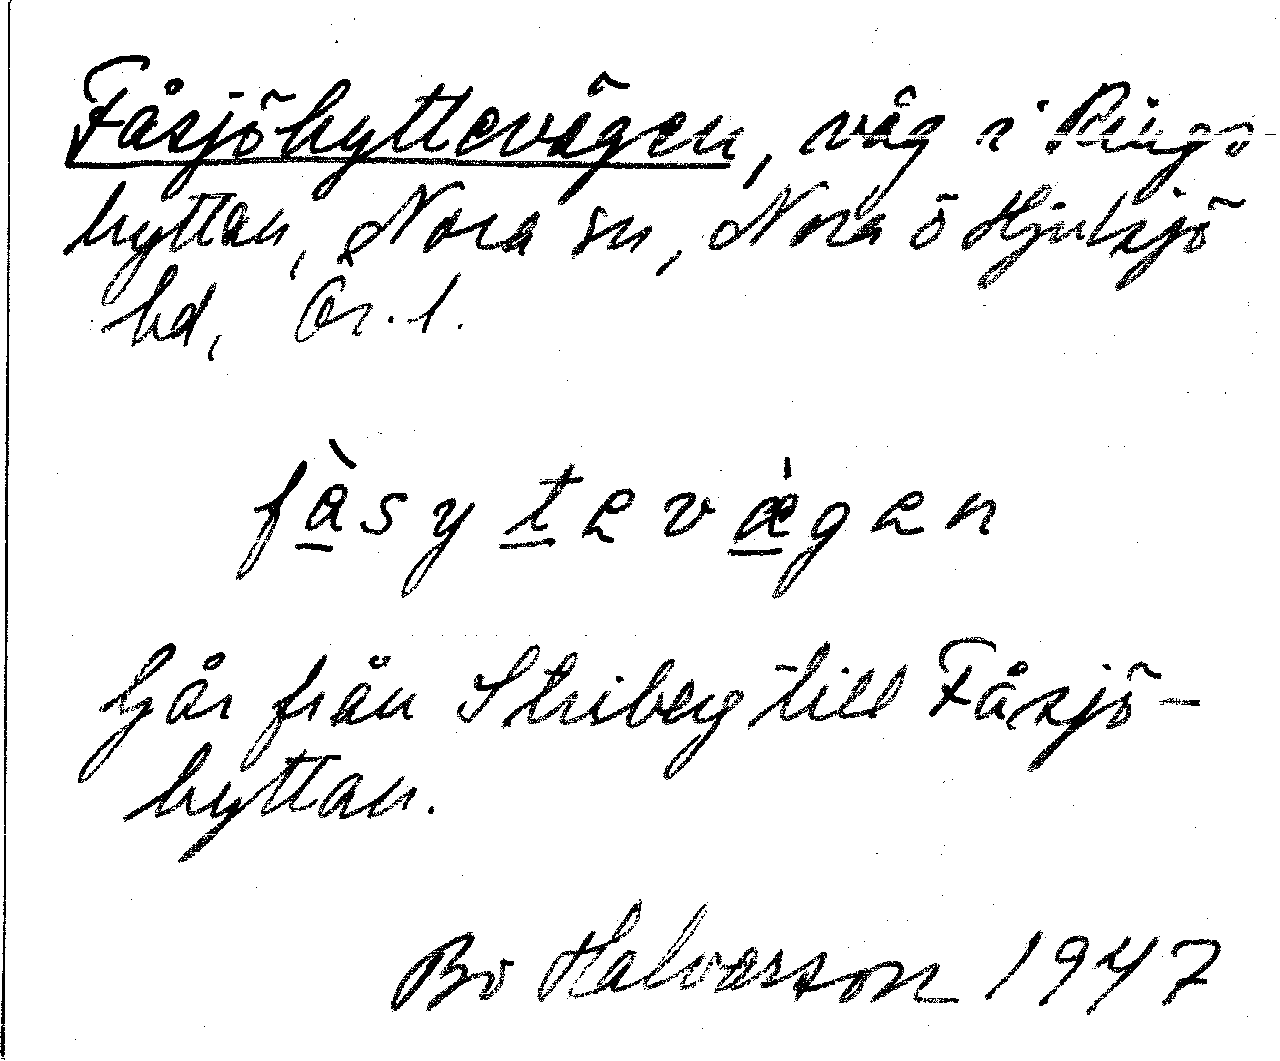 Fåsjöhyttevägen, väg i Rings-
hyttan, Nora sn, Nora ö Hjulsjö
hd, Ör. l.
fàsytevægen
Går från Striberg till Fåsjö-
hyttan.
Bo Halvarsson 1947